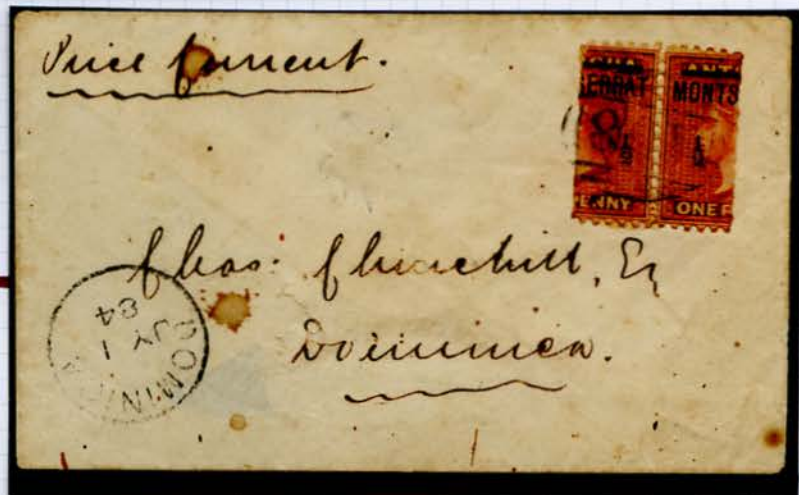 Price Current.
ANT
SERRAT MONTS
ENNY ONE P
Chas. Churchill, Er
Dominica.
DOMINICA
JY 1
84